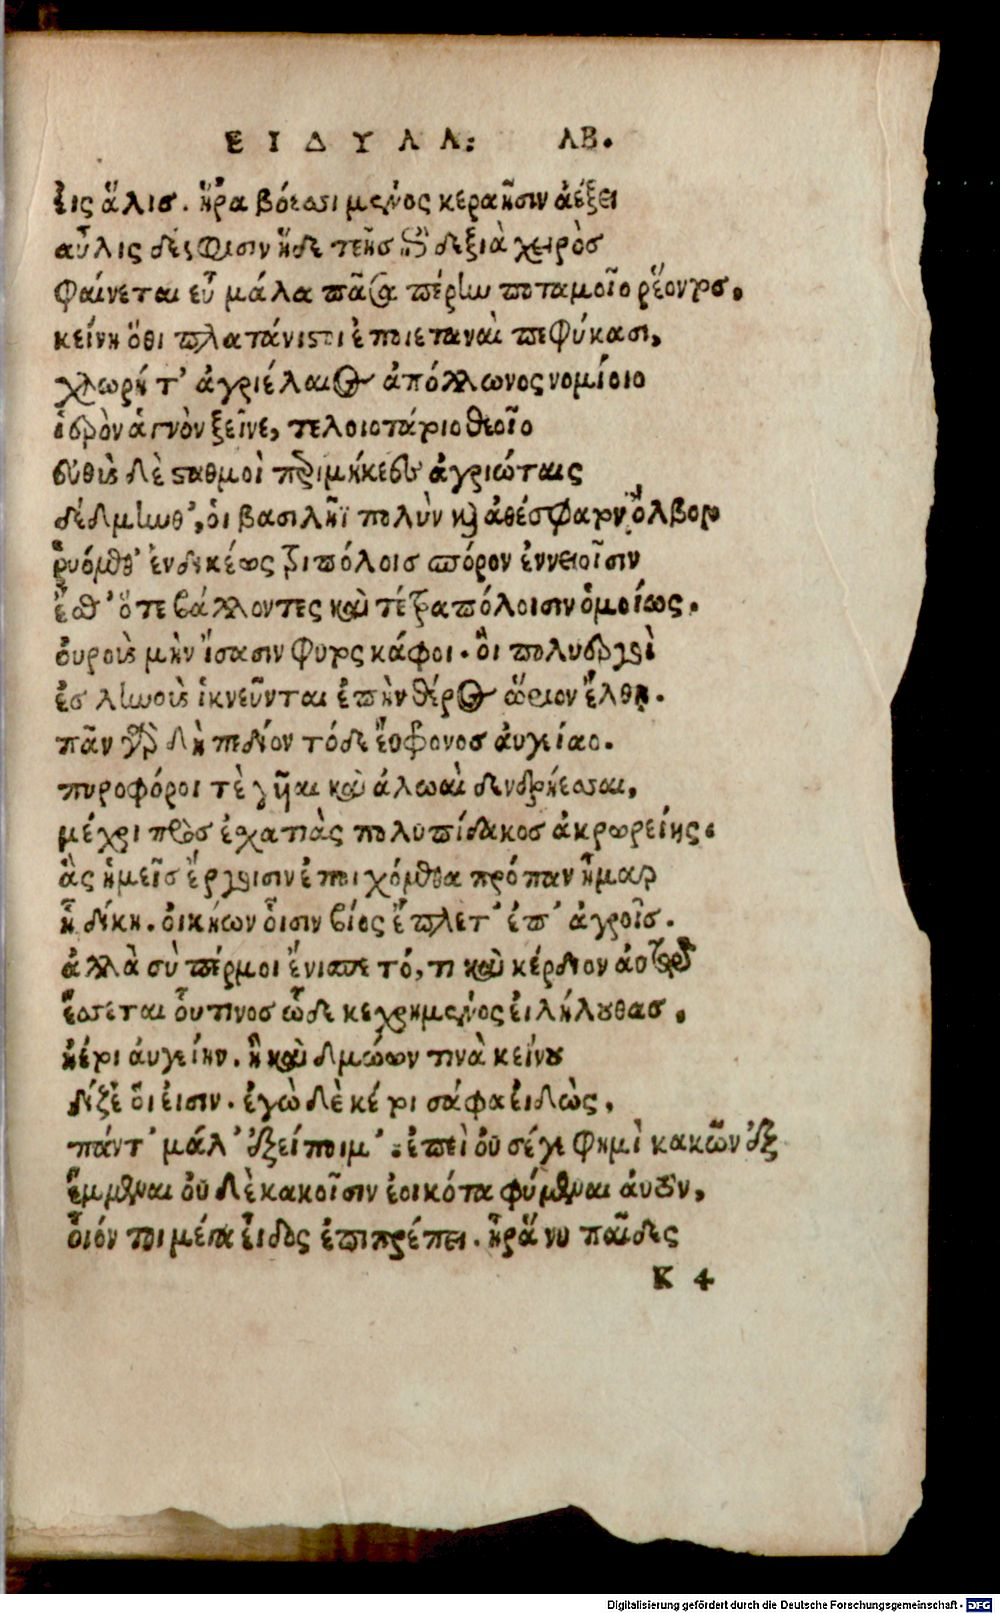 ΕΙΔΥΛΛ: ΛΒ.
εἰς ἅλις. ἥρα βόεσσι μενος κεραῇσιν ἀέξει
αὖλις δέ σφισιν ἥδε τεῆς ἐπὶ δεξιὰ χειρὸς
φαίνεται εὖ μάλα πᾶσα πέρην ποταμοῖο ῥέοντος,
κείνη ὅθι πλατάνιστοι ἐπηεταναὶ πεφύκασι,
χλωρή τ' ἀγριέλαιος ἀπόλλωνος νομίοιο
ἱερὸν ἁγνὸν ξεῖνε, τελοιοτάριο θεοῖο
εὐθὺς δὲ σταθμοὶ περιμήκεες ἀγριώταις
δέδμηνθ', οἱ βασιλῆϊ πολὺν καὶ ἀθέσφατον ὄλβον
ῥυόμεθ' ἐνδυκέως τριπόλοις σπόρον ἐν νειοῖσιν
ἔσθ' ὅτε βάλλοντες καὶ τετραπόλοισιν ὁμοίως.
οὐροὺς μὴν ἴσασιν φυτοσκάφοι. οἳ πολυεργοὶ
ἐς ληνοὺς ἱκνεῦνται ἐπὴν θέρος ὥριον ἔλθῃ.
πᾶν γὰρ δὴ πεδίον τόδε ἔυφρονος αὐγείαο.
πυροφόροι τὲ γῆαι καὶ ἀλωαὶ δενδρήεσσαι,
μέχρι πρὸς ἐσχατιὰς πολυπίδακος ἀκρωρείης.
ἃς ἡμεῖς ἔργοισιν ἐποιχόμεθα πρόπαν ἦμαρ
ἡ δίκη. οἰκήων οἷσιν βίος ἔπλετ' ἐπ' ἀγροῖς.
ἀλλὰ σὺ πέρ μοι ἔνισπε τό, τι καὶ κέρδιον αὐτῷ
ἔσσεται οὗτινος ὧδε κεχρημένος εἰλήλουθας,
ἠέρι αὐγείην. ἢ καὶ δμώων τινὰ κείνου
δίζε' οἵ εἰσιν. ἐγὼ δὲ κέ τοι σάφα εἰδὼς,
πάντ' μάλ' ἐξείποιμ'. ἐπεὶ οὔ σέ γε φημὶ κακῶν ἐξ
ἔμμεναι οὐδὲ κακοῖσιν ἐοικότα φύμεναι αὐτὸν,
οἷόν τοι μέγα εἶδος ἐπιπρέπει. ἦρά νυ παῖδες
K 4
Digitalisierung gefördert durch die Deutsche Forschungsgemeinschaft - DFG